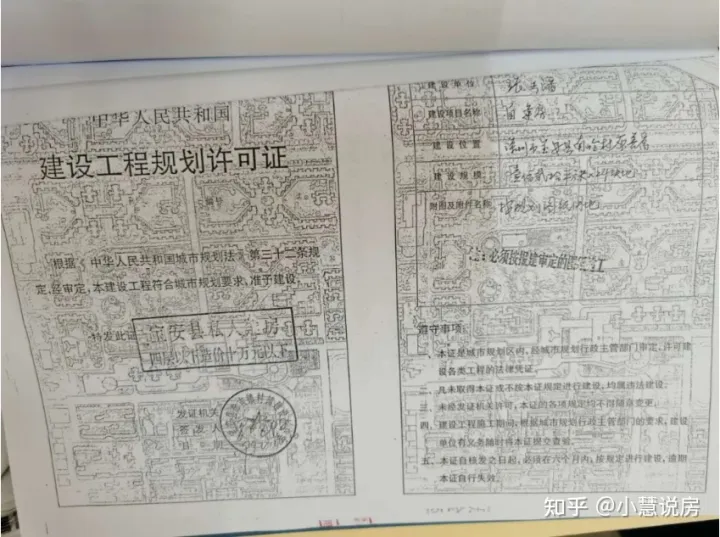 中华人民共和国
建设工程规划许可证
编号
根据《中华人民共和国城市规划法》第三十二条规
定，经审定，本建设工程符合城市规划要求，准于建设。
特发此证
宝安县私人建房
四层以下造价十万元以下
发证机关
签发人
日期
建设单位
建设项目名称
建设位置
建设规模
附图及附件名称
注：必须按报建审定的图纸施工
遵守事项：
一、本证是城市规划区内，经城市规划行政主管部门审定，许可建
设各类工程的法律凭证。
二、凡未取得本证或不按本证规定进行建设，均属违法建设。
三、未经发证机关许可，本证的各项规定均不得随意变更。
四、建设工程施工期间，根据城市规划行政主管部门的要求，建设
单位有义务随时将本证提交查验。
五、本证自核发之日起，必须在六个月内，按规定进行建设，逾期
本证自行失效。
知乎 @小慧说房